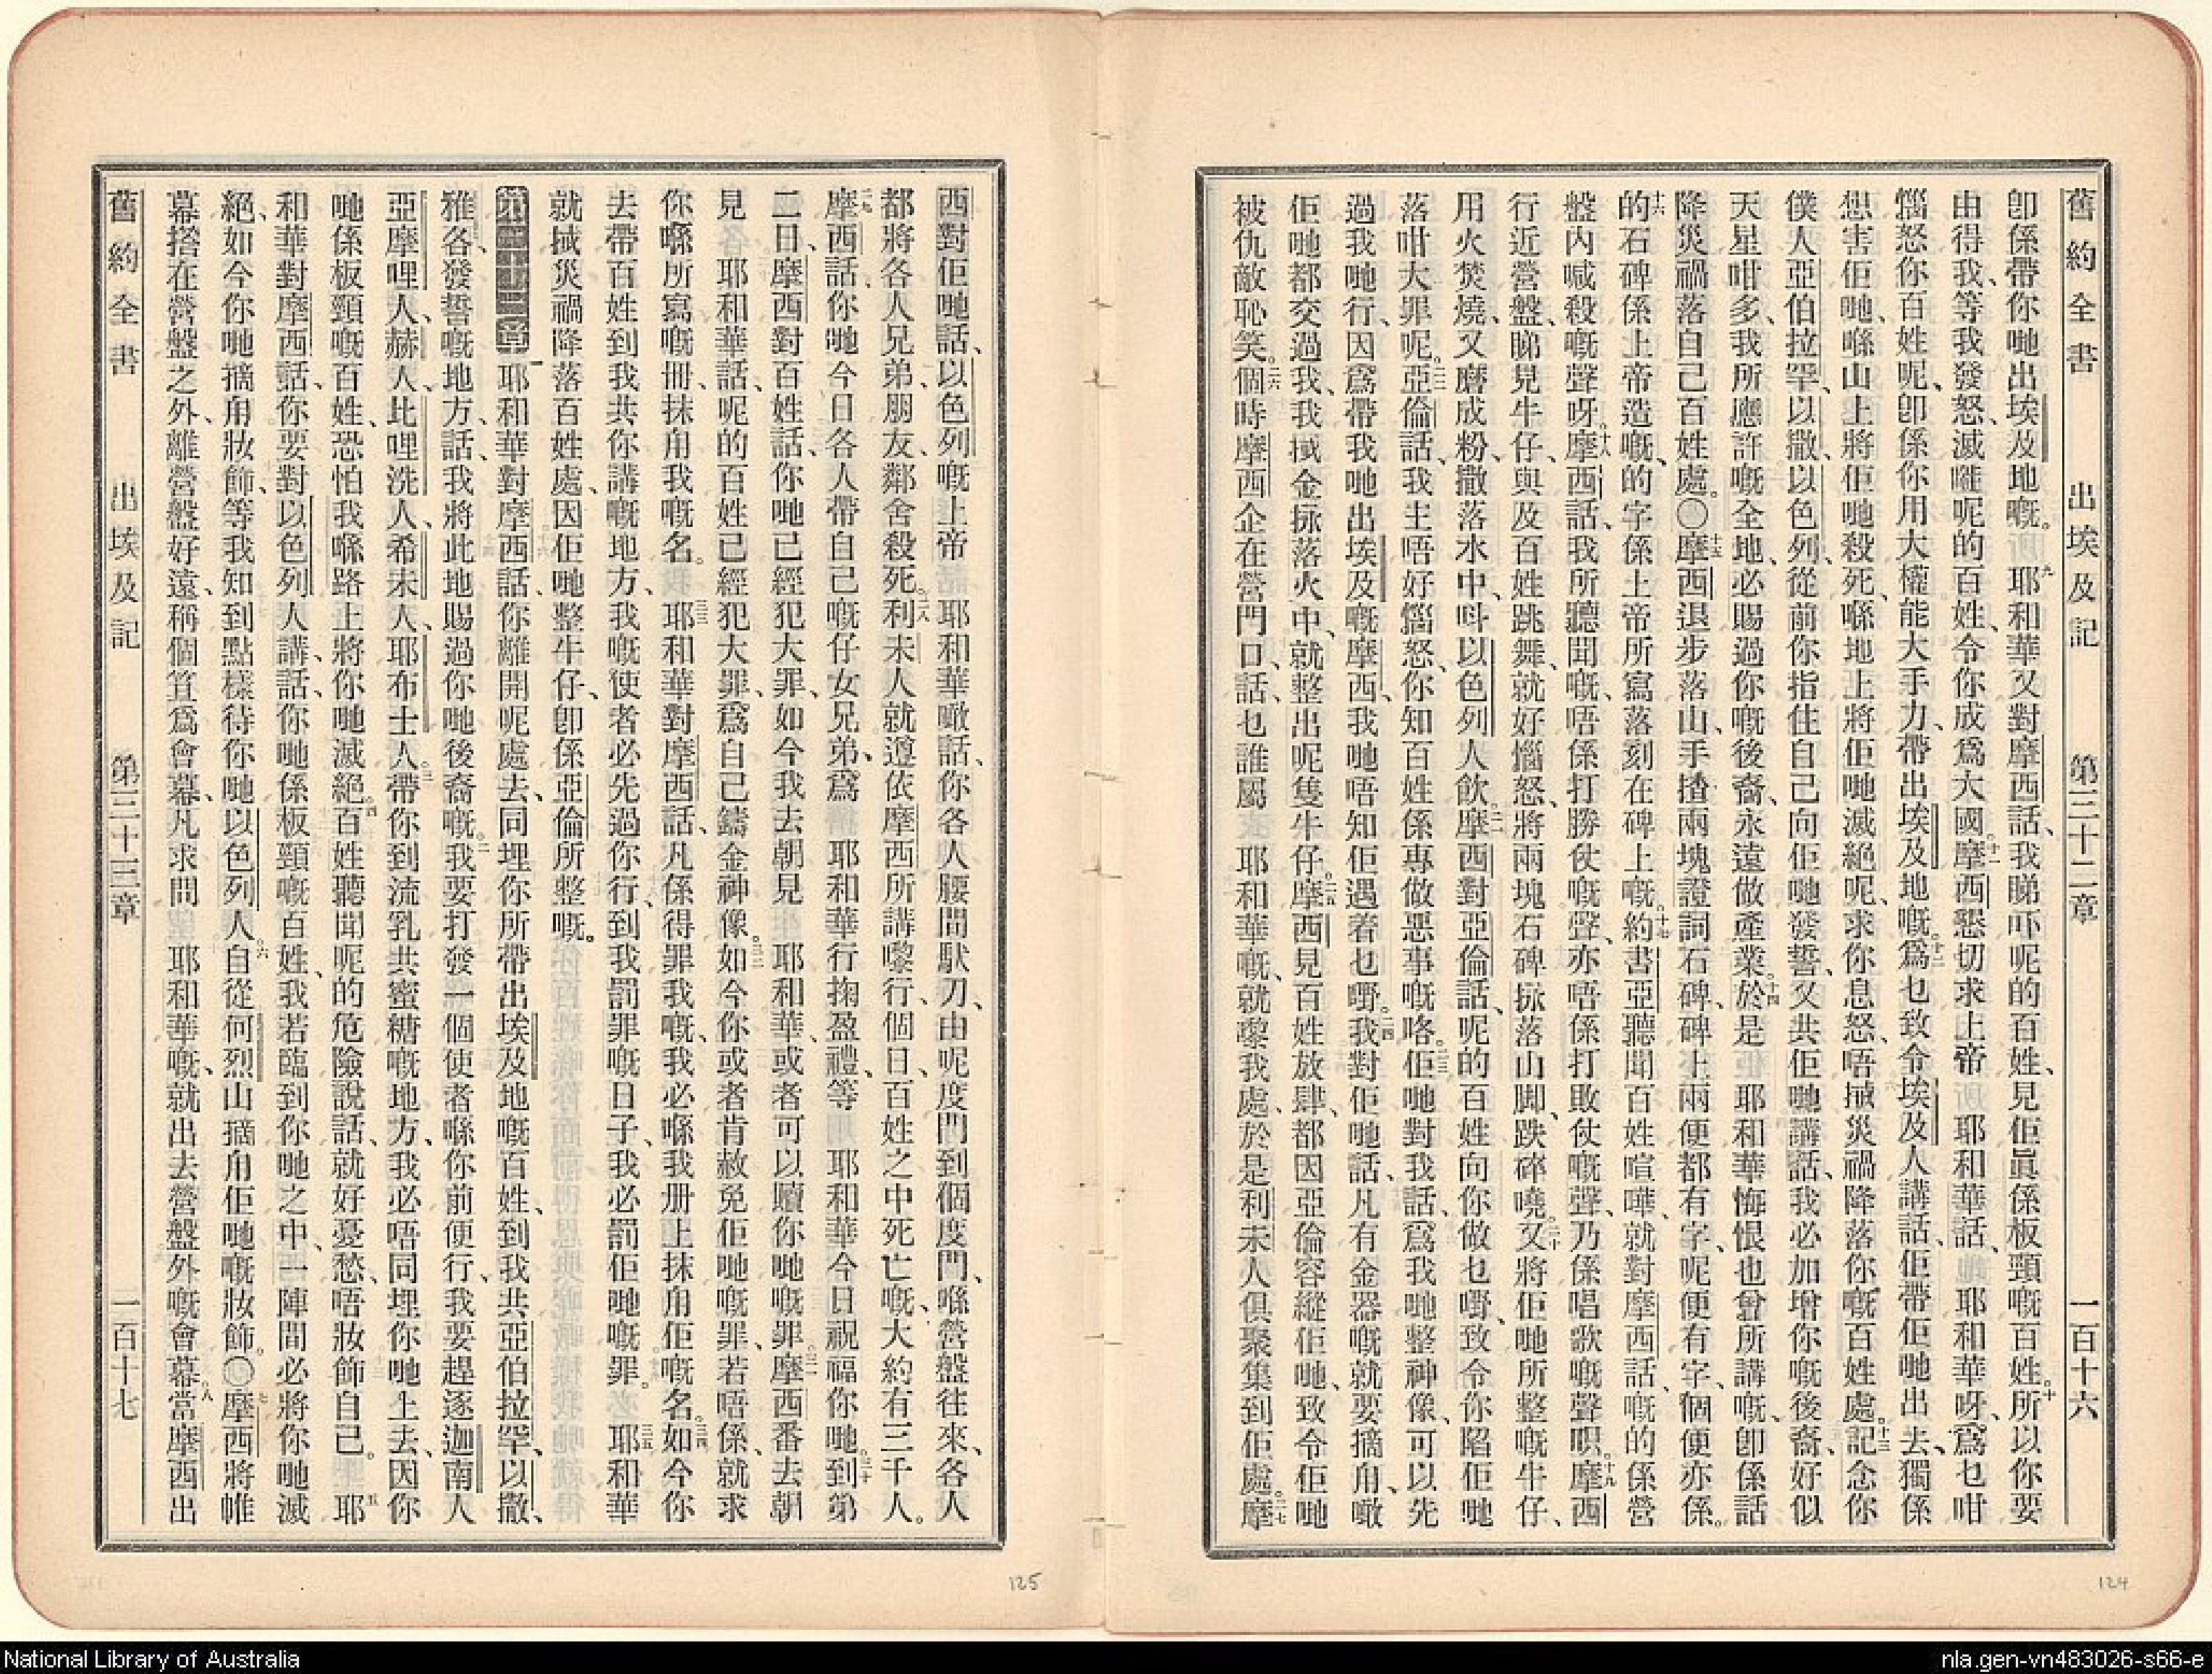 舊約全書　出埃及記　第三十二章　一百十六
卽係帶你哋出埃及地嘅。九耶和華又對摩西話、我睇吓呢的百姓、見佢眞係板頸嘅百姓。十所以你要
由得我、等我發怒、滅曥呢的百姓、令你成爲大國。十一摩西懇切求上帝　耶和華話、耶和華呀、爲乜咁
惱怒你百姓呢、卽係你用大權能大手力、帶出埃及地嘅。十二爲乜致令埃及人講話、佢帶佢哋出去、獨係
想害佢哋、喺山上將佢哋殺死、喺地上將佢哋滅絕呢、求你息怒、唔搣災禍降落你嘅百姓處。十三記念你
僕人亞伯拉罕、以撒、以色列、從前你指住自己向佢哋發誓、又共佢哋講話、我必加增你嘅後裔、好似
天星咁多、我所應許嘅全地、必賜過你嘅後裔、永遠做產業。十四於是　耶和華悔恨也曾所講嘅、卽係話
降災禍落自己百姓處。〇十五摩西退步落山、手揸兩塊證詞石碑、碑上兩便都有字、呢便有字、個便亦係。
十六的石碑係上帝造嘅、的字係上帝所寫落刻在碑上嘅。十七約書亞聽聞百姓喧嘩、就對摩西話、嘅的係營
盤內喊殺嘅聲呀。十八摩西話、我所聽聞嘅、唔係打勝仗嘅聲、亦唔係打敗仗嘅聲、乃係唱歌嘅聲呮。十九摩西
行近營盤、睇見牛仔、與及百姓跳舞、就好惱怒、將兩塊石碑揼落山脚、跌碎曉。二十又將佢哋所整嘅牛仔、
用火焚燒、又磨成粉、撒落水中、呌以色列人飲。二一摩西對亞倫話、呢的百姓向你做乜嘢、致令你陷佢哋
落咁大罪呢。二二亞倫話、我主唔好惱怒、你知百姓係專做惡事嘅咯。二三佢哋對我話、爲我哋整神像、可以先
過我哋行、因爲帶我哋出埃及嘅摩西、我哋唔知佢遇着乜嘢。二四我對佢哋話、凡有金器嘅就要擿甪、噉
佢哋都交過我、我搣金揼落火中、就整出呢隻牛仔。二五摩西見百姓放肆、都因亞倫容縱佢哋、致令佢哋
被仇敵恥笑。二六個時摩西企在營門口、話、乜誰屬　耶和華嘅、就嚟我處、於是利未人俱聚集到佢處。二七摩
西對佢哋話、以色列嘅上帝　耶和華噉話、你各人腰間默刃、由呢度門到個度門、喺營盤往來、各人
都將各人兄弟、朋友、鄰舍殺死。二八利未人就遵依摩西所講嚟行、個日、百姓之中死亡嘅、大約有三千人。
二九摩西話、你哋今日各人帶自己嘅仔女兄弟、爲　耶和華行掬盈禮、等　耶和華今日祝福你哋。三十到第
二日、摩西對百姓話、你哋已經犯大罪、如今我去朝見　耶和華、或者可以贖你哋嘅罪。三一摩西番去朝
見　耶和華話、呢的百姓已經犯大罪、爲自己鑄金神像。三二如今你或者肯赦免佢哋嘅罪、若唔係、就求
你喺所寫嘅册、抹甪我嘅名。三三耶和華對摩西話、凡係得罪我嘅、我必喺我册上抹甪佢嘅名。三四如今你
去帶百姓到我共你講嘅地方、我嘅使者必先過你行、到我罰罪嘅日子、我必罰佢哋嘅罪。三五耶和華
就搣災禍降落百姓處、因佢哋整牛仔、卽係亞倫所整嘅。
第三十三章　一耶和華對摩西話、你離開呢處去、同埋你所帶出埃及地嘅百姓、到我共亞伯拉罕、以撒、
雅各、發誓嘅地方、話、我將此地賜過你哋後裔嘅。二我要打發一個使者喺你前便行、我要趕逐迦南人
亞摩哩人、赫人、比哩洗人、希未人、耶布士人。三帶你到流乳共蜜糖嘅地方、我必唔同埋你哋上去、因你
哋係板頸嘅百姓、恐怕我喺路上將你哋滅絕。四百姓聽聞呢的危險說話、就好憂愁、唔妝飾自己。五耶
和華對摩西話、你要對以色列人講、話、你哋係板頸嘅百姓、我若臨到你哋之中、一陣間必將你哋滅
絕、如今你哋擿甪妝飾、等我知到點樣待你哋。六以色列人自從何烈山擿甪佢哋嘅妝飾。〇七摩西將帷
幕搭在營盤之外、離營盤好遠、稱個箕爲會幕、凡求問　耶和華嘅、就出去營盤外嘅會幕。八當摩西出
舊約全書　出埃及記　第三十三章　一百十七
125
124
National Library of Australia
nla.gen-vn483026-s66-e